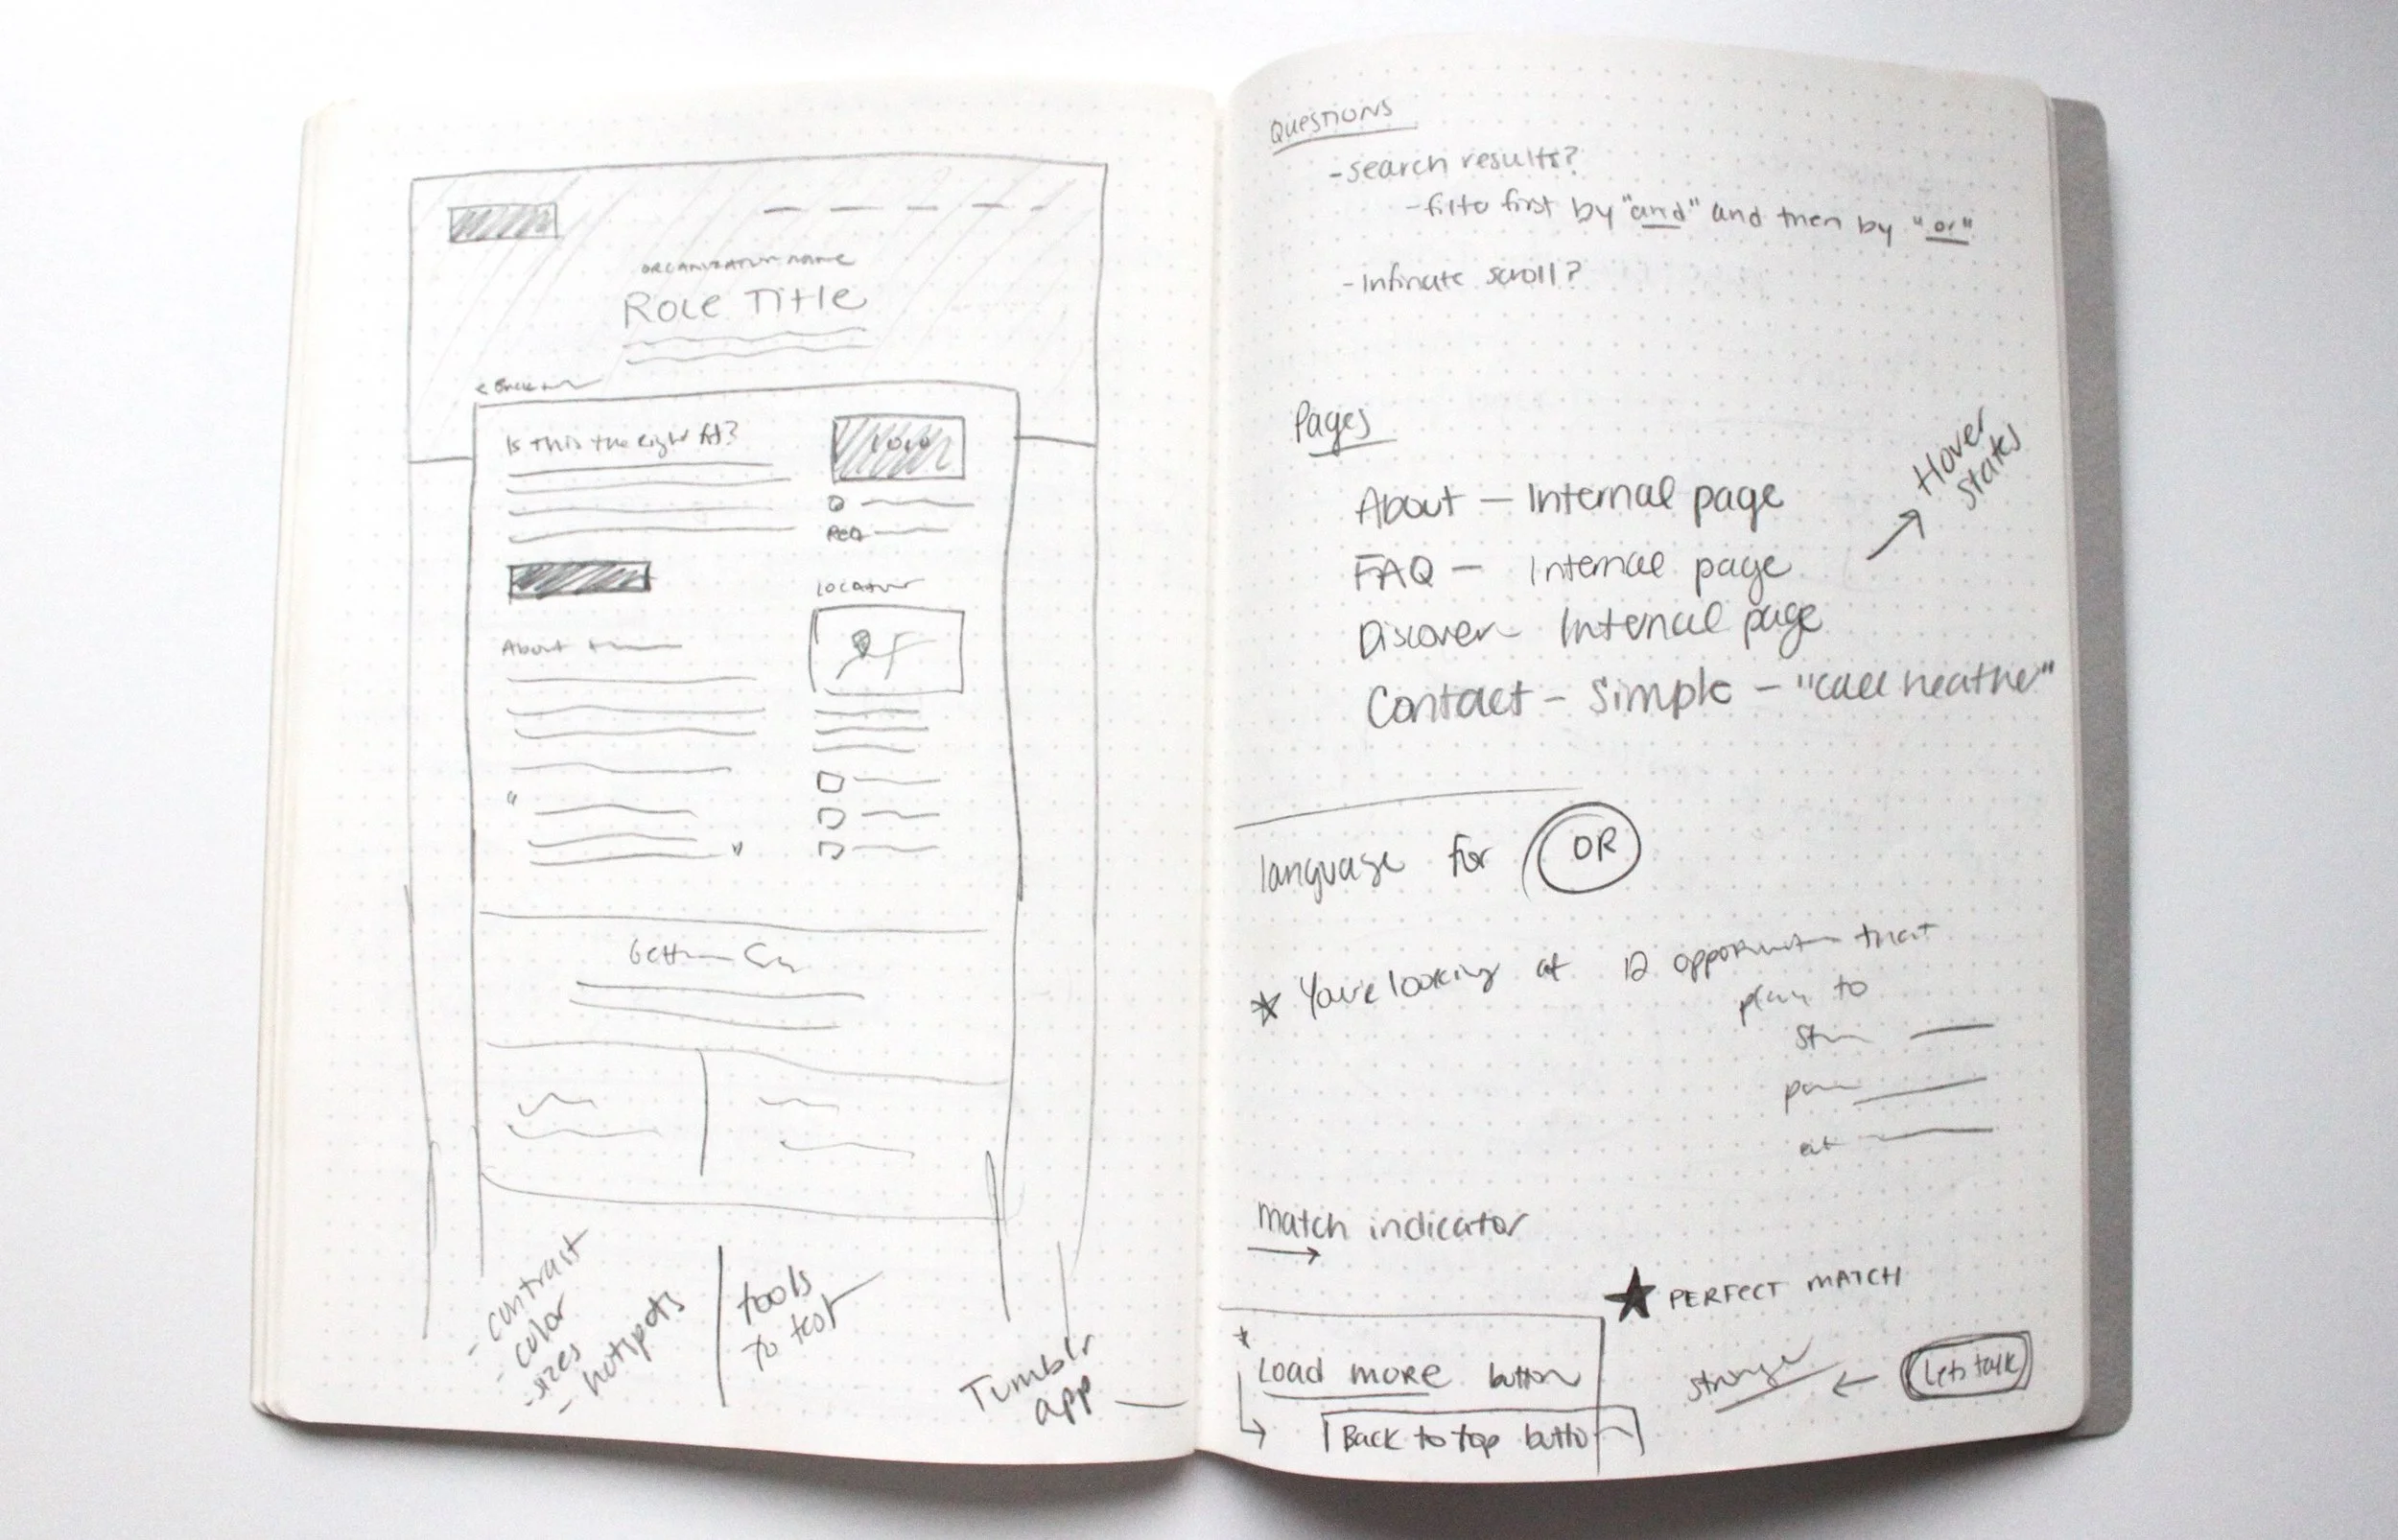 ORGANIZATION NAME
Role Title
< Back
Is this the right fit?
LOGO
REQ
Location
About
"
"
- contrast
- color
- sizes
- hotspots
tools
to test
Tumblr
app
QUESTIONS
- search results?
- filter first by "and" and then by "or"
- Infinate scroll?
Pages
About - Internal page
FAQ - Internal page
Discover - Internal page
Contact - Simple - "call heather"
Hover
states
language for OR
You're looking at 12 that
to
match indicator
PERFECT MATCH
Load more button
Back to top button
stronger
Let's talk